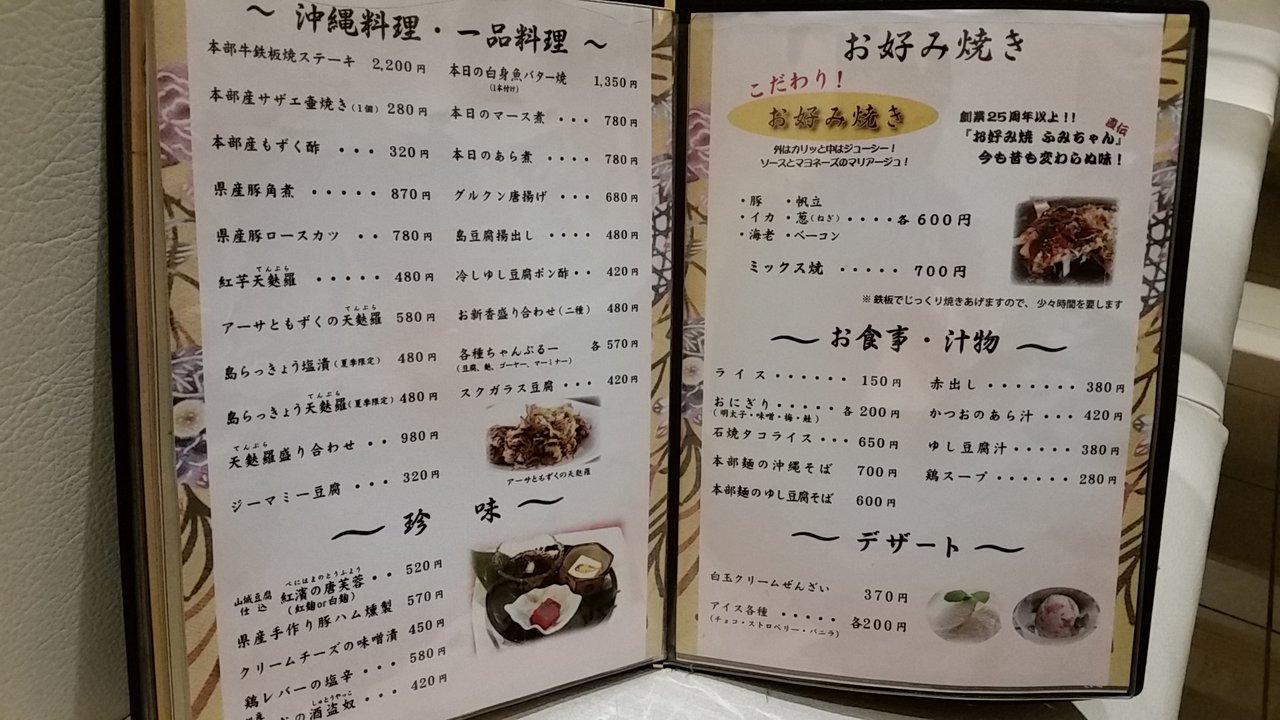 〜 沖縄料理・一品料理 〜
本部牛鉄板焼ステーキ 2,200円
本部産サザエ壷焼き(1個) 280円
本部産もずく酢 ・・・ 320円
県産豚角煮 ・・・・・ 870円
県産豚ロースカツ ・・ 780円
てんぷら
紅芋天麩羅 ・・・・・ 480円
てんぷら
アーサともずくの天麩羅 580円
島らっきょう塩漬(夏季限定) 480円
てんぷら
島らっきょう天麩羅(夏季限定) 480円
てんぷら
天麩羅盛り合わせ ・・ 980円
ジーマミー豆腐 ・・・ 320円
本日の白身魚バター焼 1,350円
(1本付け)
本日のマース煮 ・・・ 780円
本日のあら煮 ・・・・ 780円
グルクン唐揚げ ・・・ 680円
島豆腐揚出し ・・・・ 480円
冷しゆし豆腐ポン酢・・ 420円
お新香盛り合わせ(二種) 480円
各種ちゃんぷるー 各570円
(豆腐、麩、ゴーヤー、マーミナー)
スクガラス豆腐 ・・・ 420円
アーサともずくの天麩羅
〜 珍 味 〜
べにはまのとうふよう
山城豆腐仕込 紅濱の唐芙蓉 ・・ 520円
(紅麹or白麹)
県産手作り豚ハム燻製 570円
クリームチーズの味噌漬 450円
鶏レバーの塩辛 ・・・ 580円
しゅとうやっこ
の酒盗奴 ・・・ 420円
お好み焼き
こだわり!
お好み焼き
外はカリッと中はジューシー!
ソースとマヨネーズのマリアージュ!
創業25周年以上!!
直伝
『お好み焼 ふみちゃん』
今も昔も変わらぬ味!
・豚 ・帆立
・イカ ・葱(ねぎ)・・・・各600円
・海老 ・ベーコン
ミックス焼 ・・・・・ 700円
※ 鉄板でじっくり焼きあげますので、少々時間を要します
〜 お食事・汁物 〜
ライス ・・・・・・・ 150円
おにぎり・・・・・ 各200円
(明太子・味噌・梅・鮭)
石焼タコライス ・・・ 650円
本部麺の沖縄そば 700円
本部麺のゆし豆腐そば 600円
赤出し ・・・・・・・ 380円
かつおのあら汁 ・・・ 420円
ゆし豆腐汁・・・・・ 380円
鶏スープ ・・・・・・ 280円
〜 デザート 〜
白玉クリームぜんざい 370円
アイス各種 ・・・・・ 各200円
(チョコ・ストロベリー・バニラ)